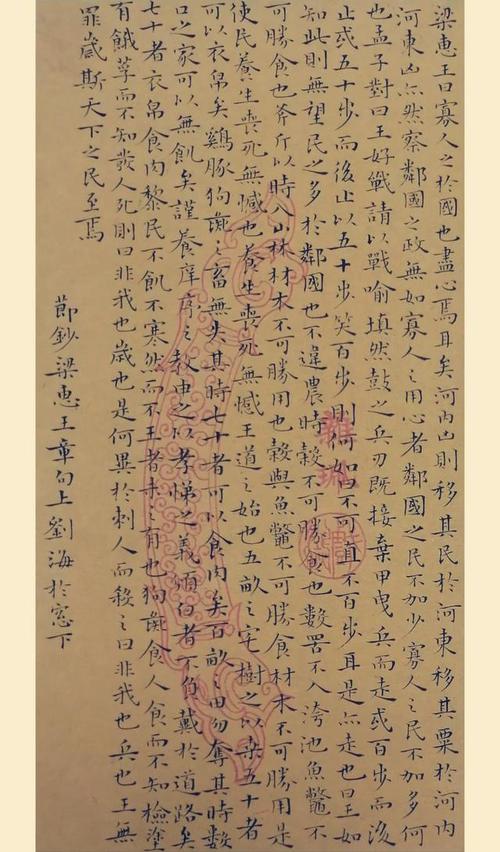 梁惠王曰寡人之於國也盡心焉耳矣河内凶則移其民於河東移其粟於河内
河東凶亦然察鄰國之政無如寡人之用心者鄰國之民不加少寡人之民不加多何
也孟子對曰王好戰請以戰喻填然鼓之兵刃既接棄甲曳兵而走或百步而後
止或五十步而後止以五十步笑百步則何如曰不可直不百步耳是亦走也曰王如
知此則無望民之多於鄰國也不違農時穀不可勝食也數罟不入洿池魚鼈不
可勝食也斧斤以時入山林材木不可勝用也穀與魚鼈不可勝食材木不可勝用是
使民養生喪死無憾也養生喪死無憾王道之始也五畝之宅樹之以桑五十者
可以衣帛矣鷄豚狗彘之畜無失其時七十者可以食肉矣百畝之田勿奪其時數
口之家可以無飢矣謹養庠序之教申之以孝悌之義頒白者不負戴於道路矣
七十者衣帛食肉黎民不飢不寒然而不王者未之有也狗彘食人食而不知檢塗
有餓莩而不知發人死則曰非我也歲也是何異於刺人而殺之曰非我也兵也王無
罪歲斯天下之民至焉
節鈔梁惠王章句上劉海於窓下